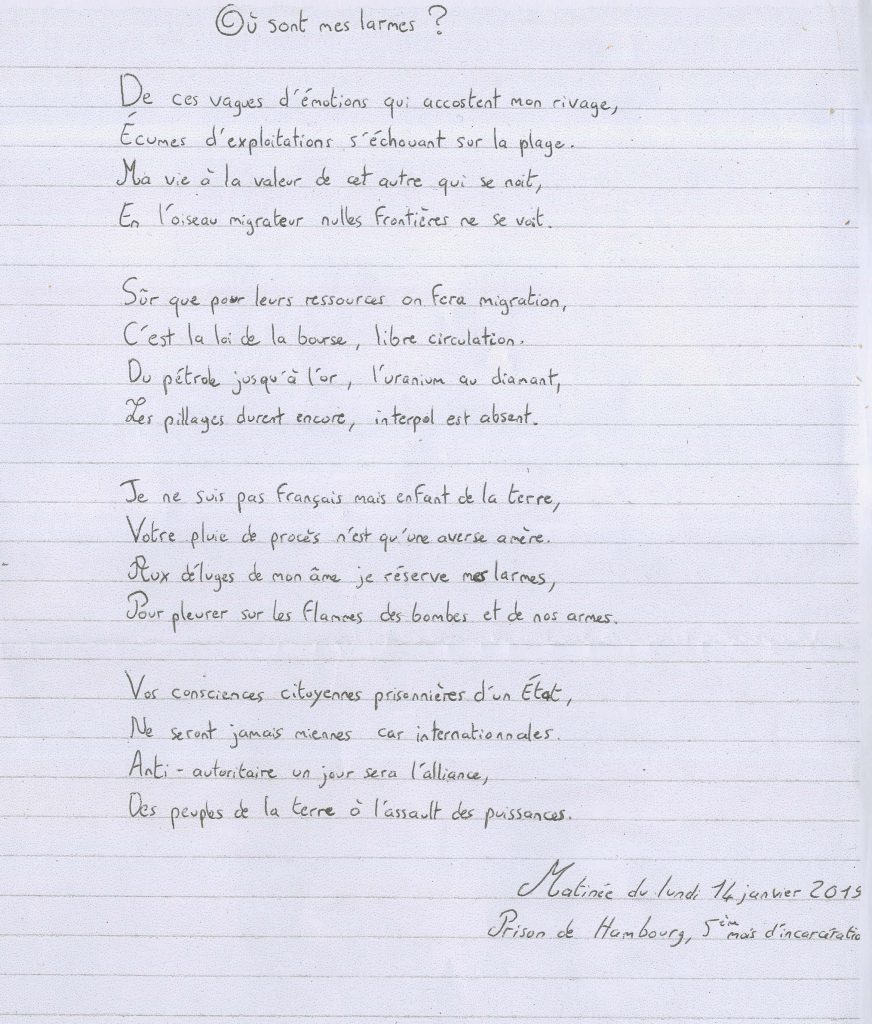 Où sont mes larmes ?
De ces vagues d'émotions qui accostent mon rivage,
Écumes d'exploitations s'échouant sur la plage.
Ma vie à la valeur de cet autre qui se noit,
En l'oiseau migrateur nulles frontières ne se voit.
Sûr que pour leurs ressources on fera migration,
C'est la loi de la bourse, libre circulation.
Du pétrole jusqu'à l'or, l'uranium au diamant,
Les pillages durent encore, interpol est absent.
Je ne suis pas français mais enfant de la terre,
Votre pluie de procès n'est qu'une averse amère.
Aux déluges de mon âme je réserve mes larmes,
Pour pleurer sur les flammes des bombes et de nos armes.
Vos consciences citoyennes prisonnières d'un État,
Ne seront jamais miennes car internationnales.
Anti-autoritaire un jour sera l'alliance,
Des peuples de la terre à l'assault des puissances.
Matinée du lundi 14 janvier 2019
Prison de Hambourg, 5ème mois d'incarcératio